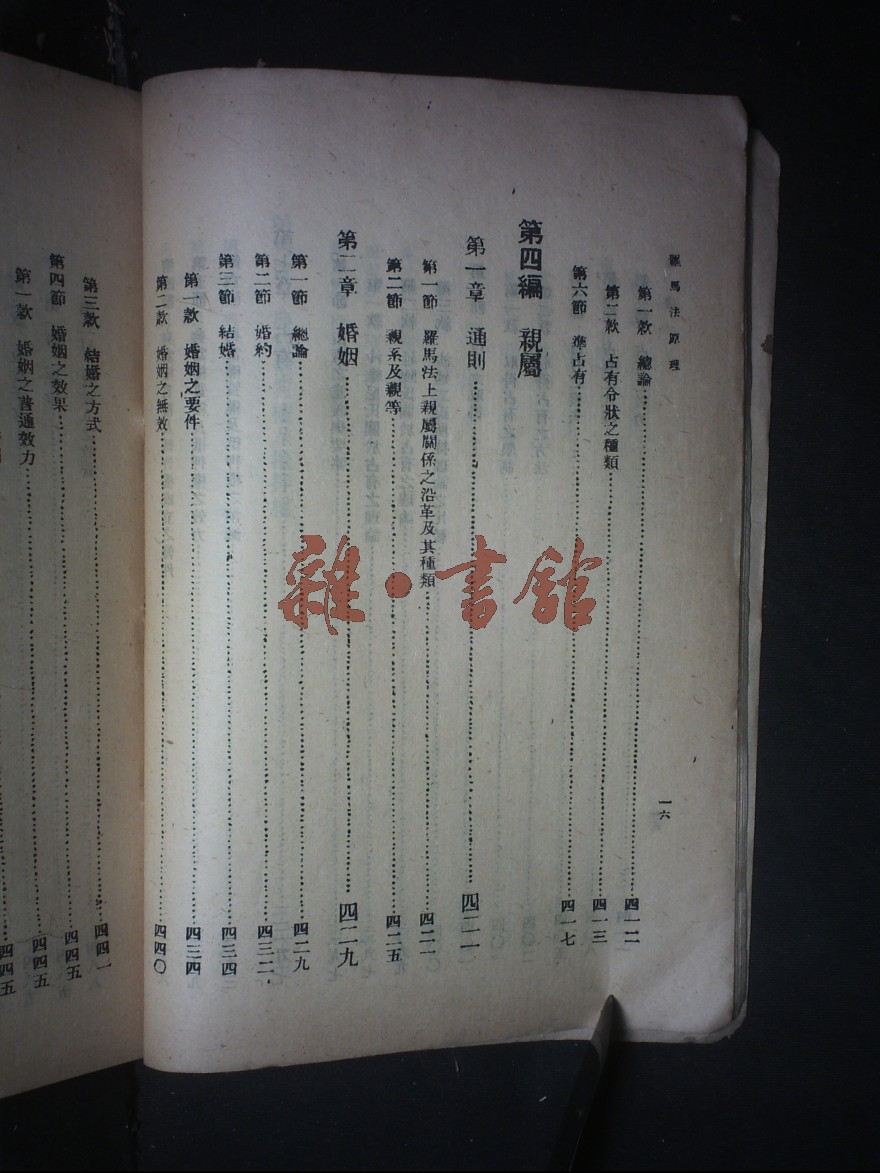 羅馬法原理
一六
第一款　總論…………四一二
第二款　占有令狀之種類…………四一三
第六節　準占有…………四一七
第四編　親屬
第一章　通則…………四二一
第一節　羅馬法上親屬關係之沿革及其種類…………四二一
第二節　親系及親等…………四二五
第二章　婚姻…………四二九
第一節　總論…………四二九
第二節　婚約…………四三二
第三節　結婚…………四三四
第一款　婚姻之要件…………四三四
第二款　婚姻之無效…………四四〇
第三款　結婚之方式…………四四一
第四節　婚姻之效果…………四四五
第一款　婚姻之普通效力…………四四五
四四五
雜·書館